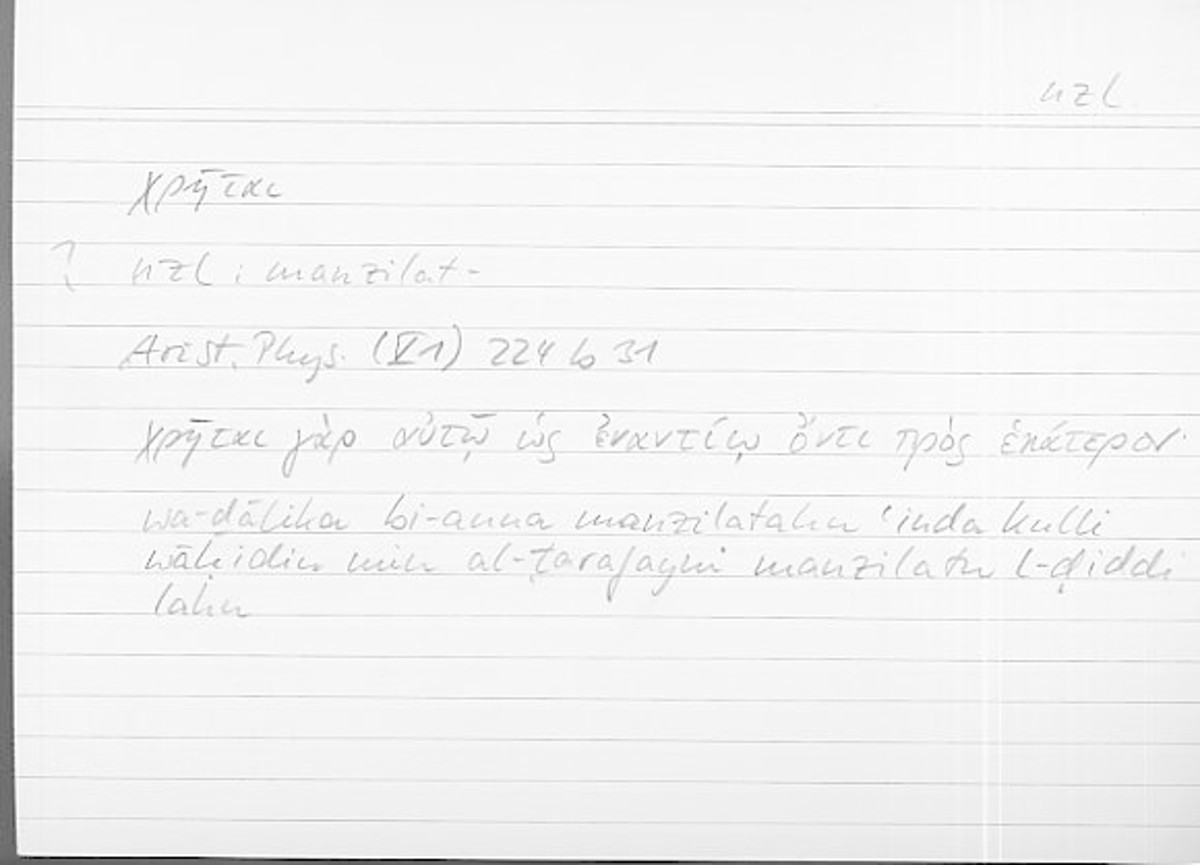 nzl
χρῆται
? nzl : manzilat-
Arist. Phys. (V 1) 224 b 31
χρῆται γὰρ αὐτῷ ὡς ἐναντίῳ ὄντι πρὸς ἑκάτερον·
wa-ḏālika bi-anna manzilatahu ʿinda kulli
wāḥidin min al-ṭarafayni manzilatu l-ḍiddi
lahu